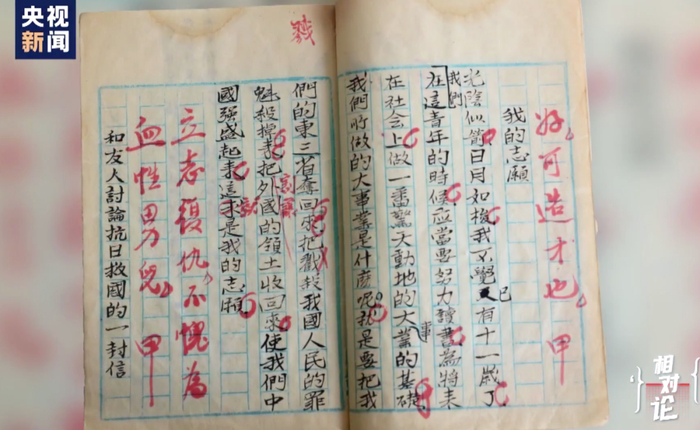 央视
新闻
好可造才也 甲
我的志願
光陰似箭日月如梭我不覺已有十一歲了
我們在這青年的時候应當要努力讀書為將來
在社会上做一番驚天動地的大事業的基礎
我們所做的大事業是什麼呢就是要把我
們的東三省奪回來把我國人民的罪
魁殺掉把外國的領土收回來使我們中
國強盛起來這才是我的志願
立志復仇不愧為
血性男兒 甲
和友人討論抗日救國的一封信
相对论